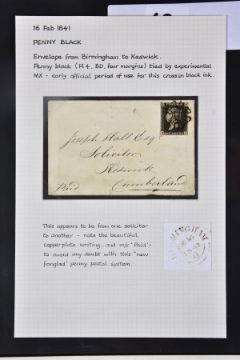 16 Feb 1841
PENNY BLACK
Envelope from Birmingham to Keswick.
Penny black (Pl 4, BD, four margins) tied by experimental
MX - early official period of use for this cross in black ink.
Joseph Hall Esq
Solicitor
Keswick
Paid
Cumberland
This appears to be from one solicitor
to another - note the beautiful
copperplate writing, and m/s 'Paid' -
to avoid any doubt with this "new
fangled" penny postal system.
BIRMINGHAM